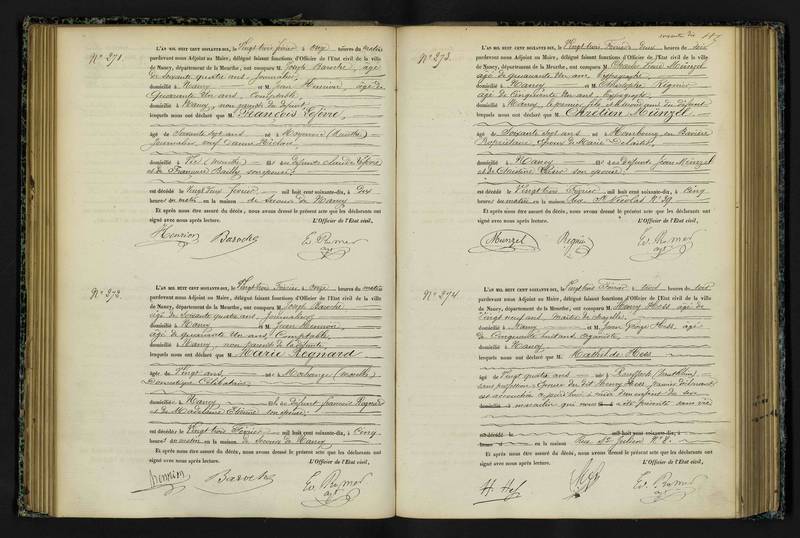 N° 271.
L'AN MIL HUIT CENT SOIXANTE-DIX, le Vingt trois février à onze heures du matin
pardevant nous Adjoint au Maire, délégué faisant fonctions d'Officier de l'Etat civil de la ville
de Nancy, département de la Meurthe, ont comparu M. Joseph Baroche, âgé
de Soixante quatre ans, journalier,
domicilié à Nancy et M. Jean Henrion, âgé de
Quarante Un ans, Comptable,
domicilié à Nancy, non parents du défunt,
lesquels nous ont déclaré que M. François Lefèvre,
âgé de Soixante sept ans né à Moyenvic (Meurthe)
journalier, veuf
domicilié à Vic (Meurthe) fils de défunts Claude Lefèvre
et de Françoise Bailly son épouse
est décédé le Vingt deux février mil huit cent soixante-dix, à Dix
heures du matin en la maison de Secours de Nancy
Et après nous être assuré du décès, nous avons dressé le présent acte que les déclarants ont
signé avec nous après lecture. L'Officier de l'Etat civil,
Henrion Baroche Ev. Ramer
N° 272.
L'AN MIL HUIT CENT SOIXANTE-DIX, le Vingt trois Février à onze heures du matin
pardevant nous Adjoint au Maire, délégué faisant fonctions d'Officier de l'Etat civil de la ville
de Nancy, département de la Meurthe, ont comparu M. Joseph Baroche
âgé de Soixante quatre ans, journalier
domicilié à Nancy et M. Jean Henrion,
âgé de quarante Un ans, Comptable,
domicilié à Nancy, non parents de la défunte,
lesquels nous ont déclaré que M. Marie Regnard
âgé de Vingt ans, né à Morhange (Moselle)
Domestique Célibataire,
domicilié à Nancy fille de défunt François Regnard
et de Madeleine Etienne son épouse
est décédée le Vingt trois Février mil huit cent soixante-dix, à Cinq
heures du matin en la maison de Secours de Nancy
Et après nous être assuré du décès, nous avons dressé le présent acte que les déclarants ont
signé avec nous après lecture. L'Officier de l'Etat civil,
Henrion Baroche Ev. Ramer
117
N° 273.
L'AN MIL HUIT CENT SOIXANTE-DIX, le Vingt trois Février à deux heures du soir
pardevant nous Adjoint au Maire, délégué faisant fonctions d'Officier de l'Etat civil de la ville
de Nancy, département de la Meurthe, ont comparu M. Charles Münzel
âgé de quarante Un ans, Typographe
domicilié à Nancy et M. Christophe Régnier
âgé de Cinquante Un ans, Typographe,
domicilié à Nancy, le premier fils
lesquels nous ont déclaré que M. Chrétien Münzel
âgé de Soixante sept ans né à en Bavière
Propriétaire, Epoux de Marie
domicilié à Nancy fils de défunts Jean Münzel
et de Christine son épouse
est décédé le Vingt trois Février mil huit cent soixante-dix, à Cinq
heures du matin en la maison Rue St Nicolas N° 39
Et après nous être assuré du décès, nous avons dressé le présent acte que les déclarants ont
signé avec nous après lecture. L'Officier de l'Etat civil,
Munzel Régnier Ev. Ramer
N° 274
L'AN MIL HUIT CENT SOIXANTE-DIX, le Vingt trois Février à trois heures du soir
pardevant nous Adjoint au Maire, délégué faisant fonctions d'Officier de l'Etat civil de la ville
de Nancy, département de la Meurthe, ont comparu M. Henry Hess âgé de
Vingt neuf ans, maître de chapelle
domicilié à Nancy et M. Jean George Hess, âgé
de Cinquante huit ans, organiste
domicilié à Nancy
lesquels nous ont déclaré que M. Mathilde Hess
âgé de Vingt quatre ans né à Rouffach (haut Rhin)
sans profession, Epouse du dit Henry Hess, premier déclarant
est accouchée à d'un enfant du sexe
masculin qui nous a été présenté sans vie
est décédé le mil huit cent soixante-dix, à
heures du en la maison Rue St Julien N° 8.
Et après nous être assuré du décès, nous avons dressé le présent acte que les déclarants ont
signé avec nous après lecture. L'Officier de l'Etat civil,
H. Hess Hess Ev. Ramer